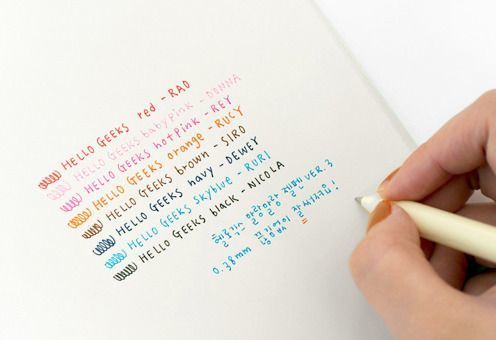 HELLO GEEKS red - RAO
HELLO GEEKS babypink - DONNA
HELLO GEEKS hotpink - REY
HELLO GEEKS orange - RUCY
HELLO GEEKS brown - SIRO
HELLO GEEKS navy - DEWEY
HELLO GEEKS skyblue - RURI
HELLO GEEKS black - NICOLA
헬로긱스 말랑말랑 젤펜 VER. 3
0.38mm 끊김없이 잘써져요!